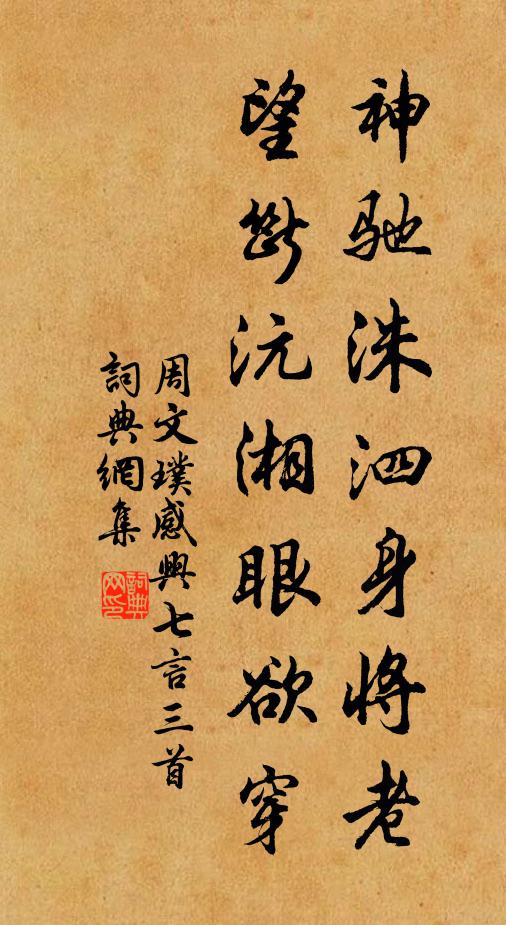 神馳洙泗身將老
望斷沅湘眼欲穿
周文璞感興七言三首
詞典網集
詞典網印